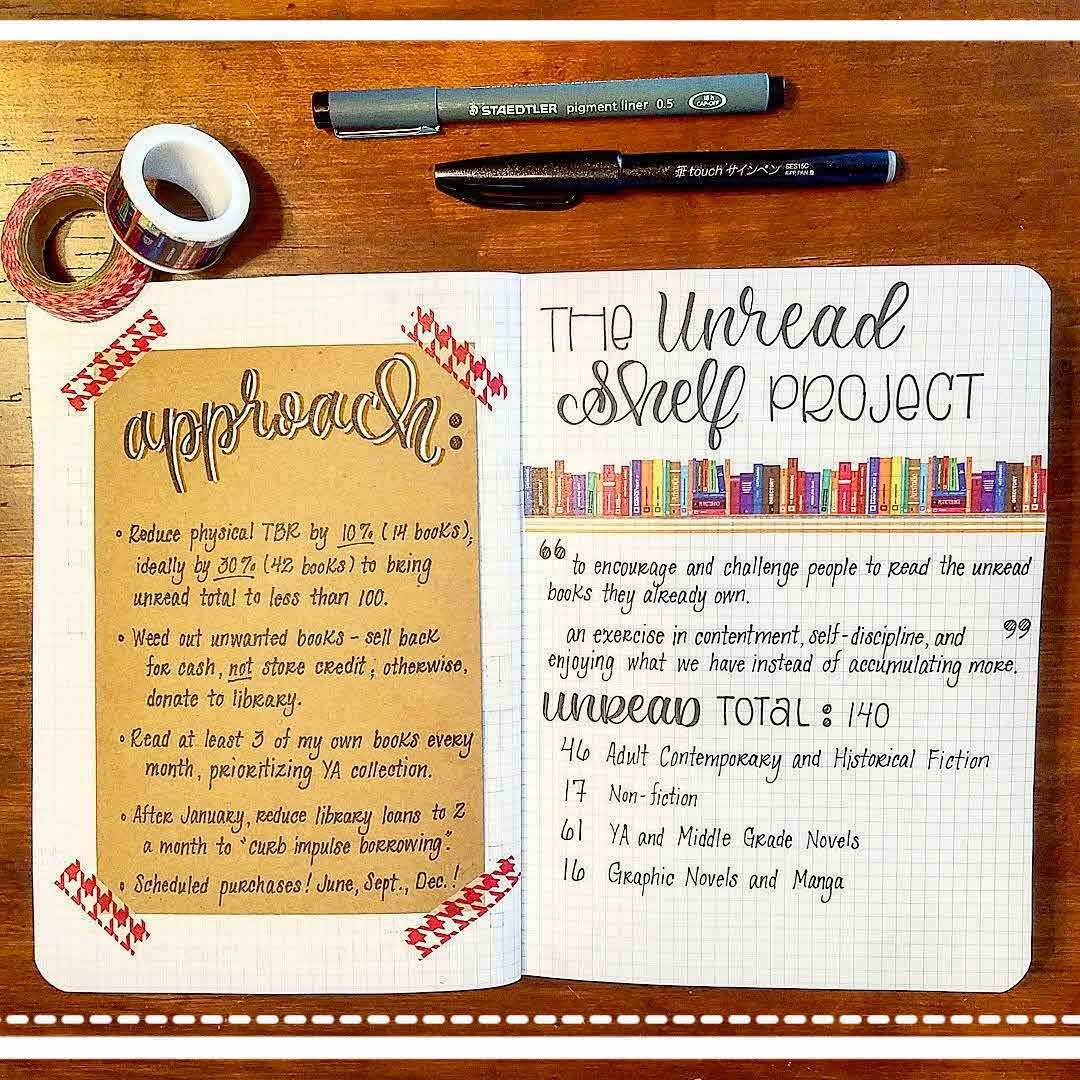 STAEDTLER pigment liner 0.5
18 h
CAP-OFF
touch サインペン SES15C
approach:
• Reduce physical TBR by 10% (14 books);
ideally by 30% (42 books) to bring
unread total to less than 100.
• Weed out unwanted books - sell back
for cash, not store credit; otherwise,
donate to library.
• Read at least 3 of my own books every
month, prioritizing YA collection.
• After January, reduce library loans to 2
a month to "curb impulse borrowing".
• Scheduled purchases! June, Sept., Dec.!
THE Unread
Shelf PROJECT
DIRECTORY
“ to encourage and challenge people to read the unread
books they already own.
an exercise in contentment, self-discipline, and ”
enjoying what we have instead of accumulating more.
UNREAD TOTAL: 140
46 Adult Contemporary and Historical Fiction
17 Non-fiction
61 YA and Middle Grade Novels
16 Graphic Novels and Manga